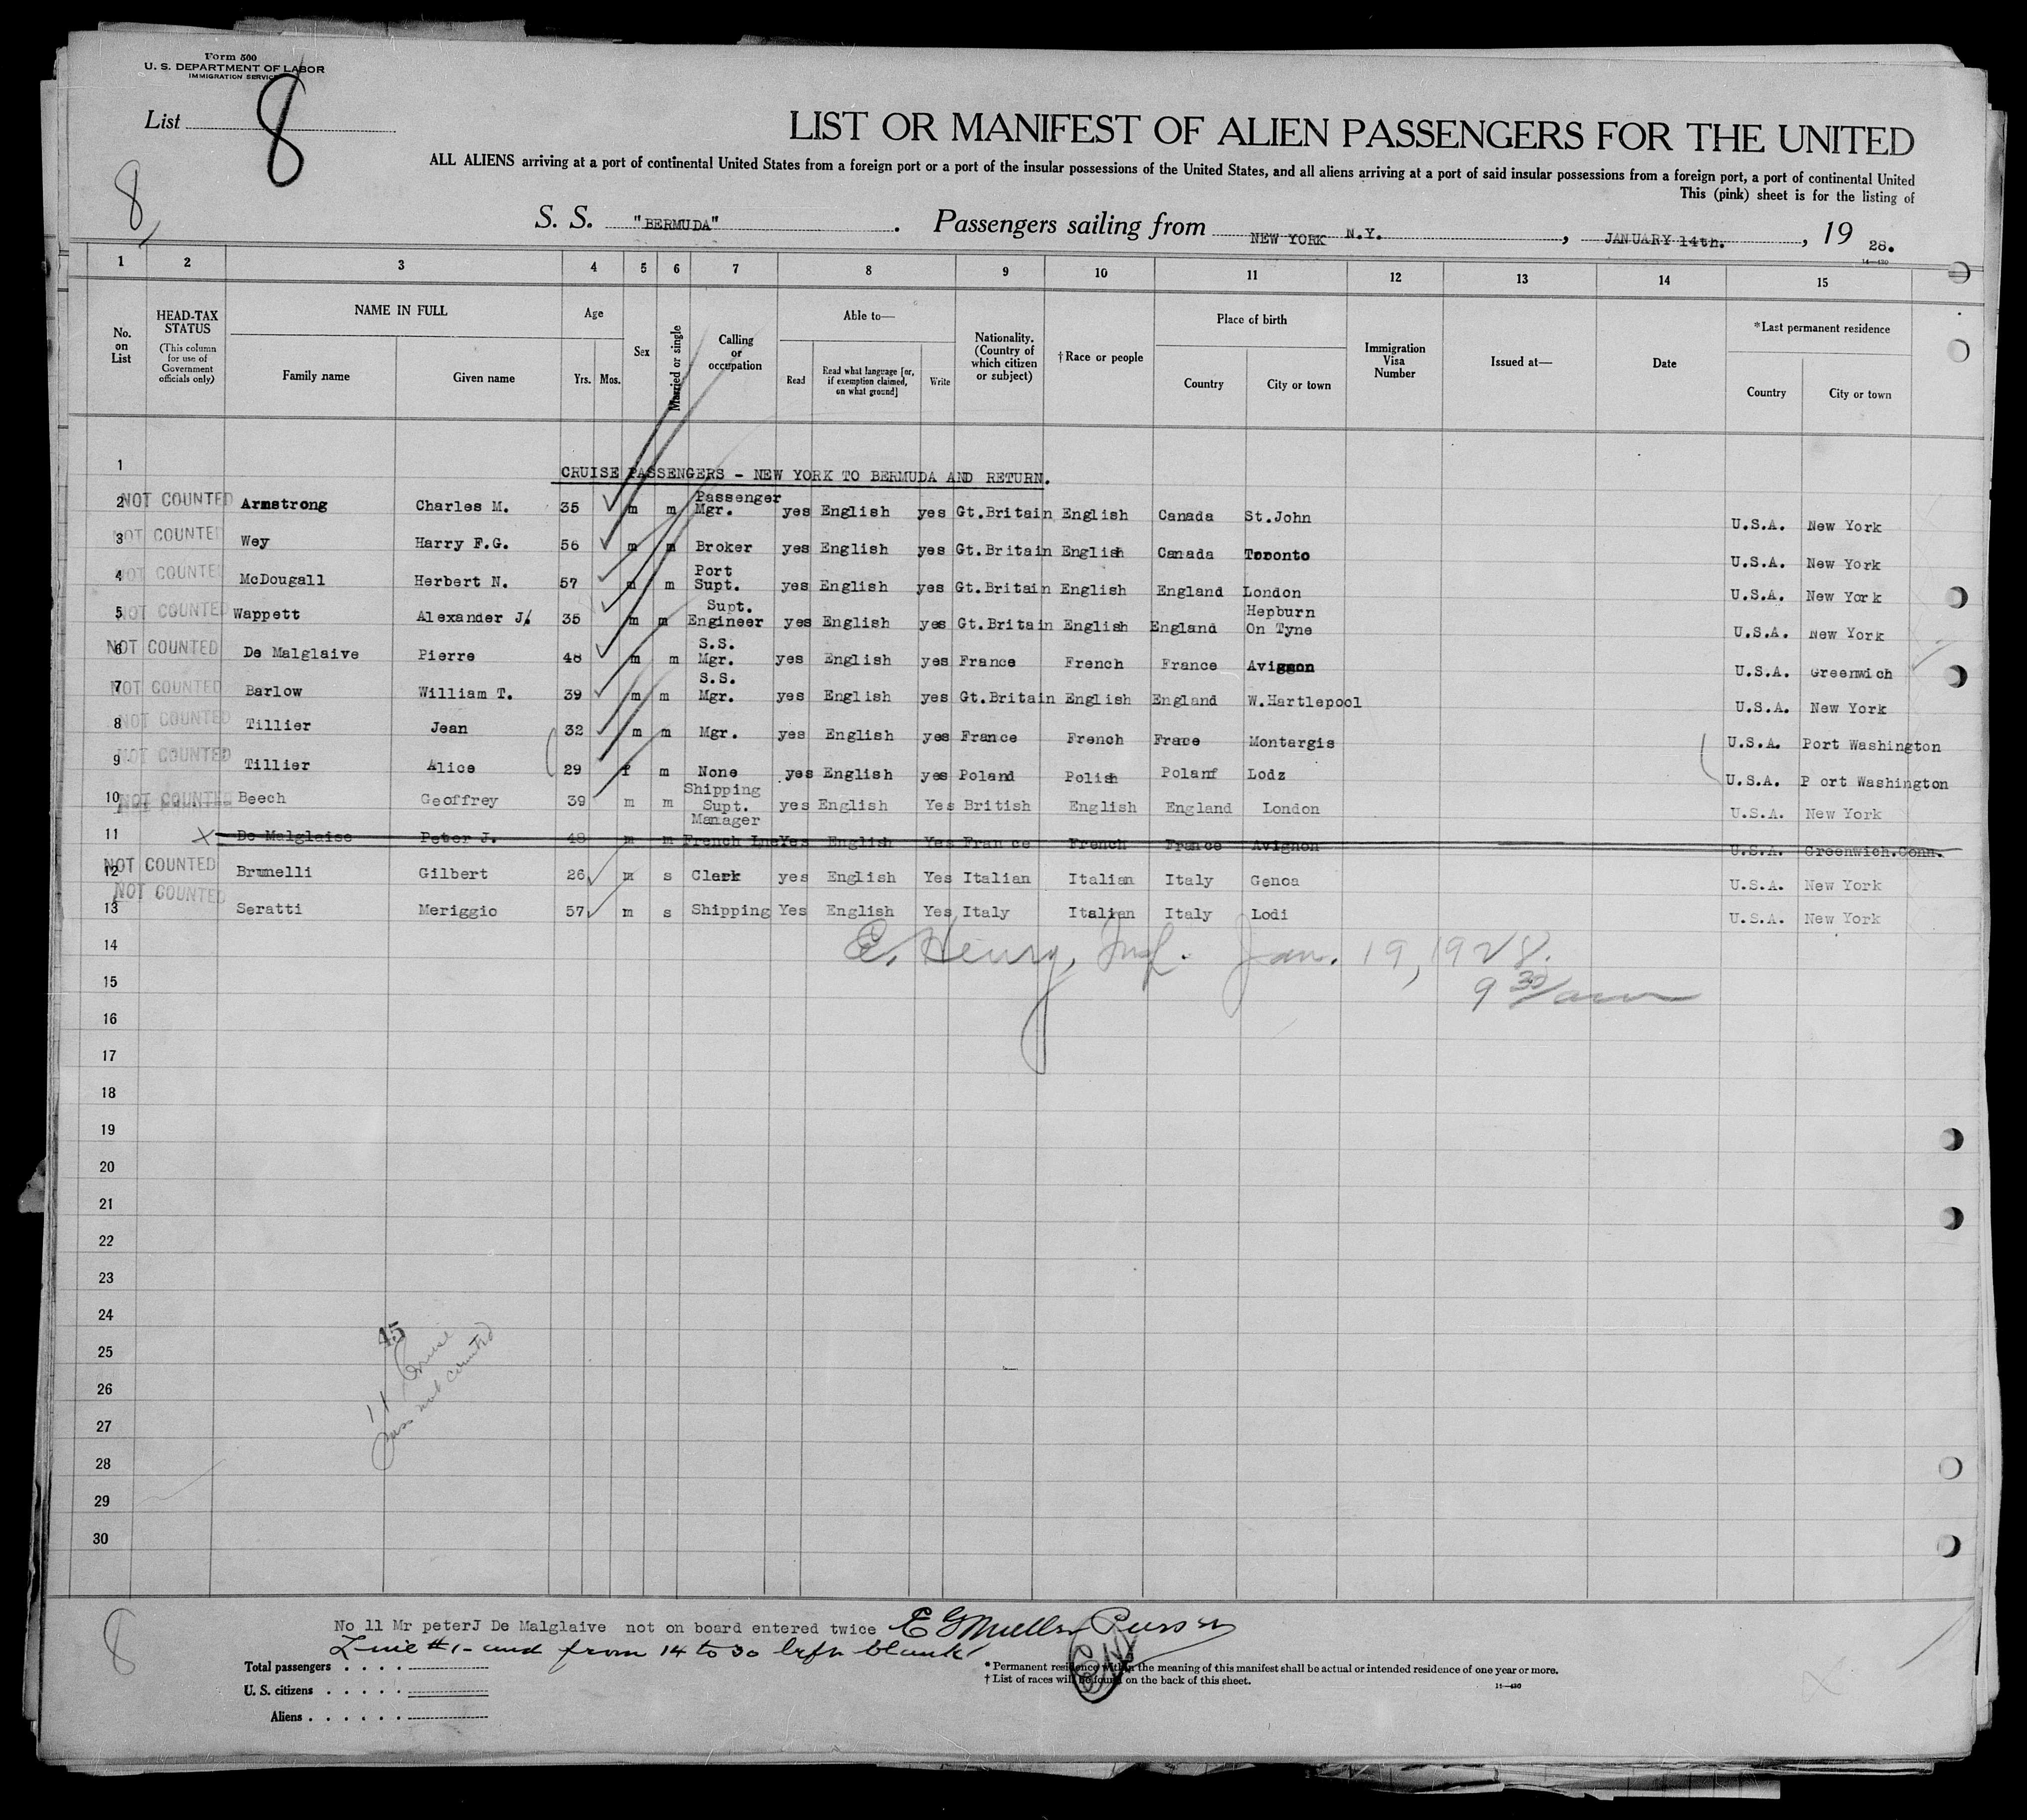 Form 500
U. S. DEPARTMENT OF LABOR
IMMIGRATION SERVICE
List 8
8
LIST OR MANIFEST OF ALIEN PASSENGERS FOR THE UNITED
ALL ALIENS arriving at a port of continental United States from a foreign port or a port of the insular possessions of the United States, and all aliens arriving at a port of said insular possessions from a foreign port, a port of continental United
This (pink) sheet is for the listing of
S. S. "BERMUDA" . Passengers sailing from NEW YORK N.Y. , JANUARY 14th. , 19 28.
14—430
1 2 3 4 5 6 7 8 9 10 11 12 13 14 15
No. on List
HEAD-TAX STATUS
(This column for use of Government officials only)
NAME IN FULL
Family name Given name
Age
Yrs. Mos.
Sex
Married or single
Calling or occupation
Able to—
Read Read what language [or, if exemption claimed, on what ground] Write
Nationality. (Country of which citizen or subject)
†Race or people
Place of birth
Country City or town
Immigration Visa Number
Issued at—
Date
*Last permanent residence
Country City or town
1 CRUISE PASSENGERS - NEW YORK TO BERMUDA AND RETURN.
2 NOT COUNTED Armstrong Charles M. 35 m m Passenger Mgr. yes English yes Gt.Britain English Canada St.John U.S.A. New York
3 NOT COUNTED Wey Harry F.G. 56 m m Broker yes English yes Gt.Britain English Canada Toronto U.S.A. New York
4 NOT COUNTED McDougall Herbert N. 57 m m Port Supt. yes English yes Gt.Britain English England London U.S.A. New York
5 NOT COUNTED Wappett Alexander J. 35 m m Supt. Engineer yes English yes Gt.Britain English England Hepburn On Tyne U.S.A. New York
6 NOT COUNTED De Malglaive Pierre 48 m m S.S. Mgr. yes English yes France French France Avignon U.S.A. Greenwich
7 NOT COUNTED Barlow William T. 39 m m S.S. Mgr. yes English yes Gt.Britain English England W.Hartlepool U.S.A. New York
8 NOT COUNTED Tillier Jean 32 m m Mgr. yes English yes France French Frace Montargis U.S.A. Port Washington
9 NOT COUNTED Tillier Alice 29 f m None yes English yes Poland Polish Polanf Lodz U.S.A. P ort Washington
10 NOT COUNTED Beech Geoffrey 39 m m Shipping Supt. yes English Yes British English England London U.S.A. New York
11 X De Malglaise Peter J. 48 m m Manager French Lne Yes English Yes France French France Avignon U.S.A. Greenwich.Conn.
12 NOT COUNTED Brunelli Gilbert 26 m s Clerk yes English Yes Italian Italian Italy Genoa U.S.A. New York
13 NOT COUNTED Seratti Meriggio 57 m s Shipping Yes English Yes Italy Italian Italy Lodi U.S.A. New York
14 E. Henry, Insp. Jan. 19, 1928.
15 9 30/am
16
17
18
19
20
21
22
23
24
45
25
26
11 Cruise
pass not counted
27
28
29
30
8
No 11 Mr peterJ De Malglaive not on board entered twice E G Muller Purser
Line #1- and from 14 to 30 left blank
Total passengers
U. S. citizens
Aliens
* Permanent residence within the meaning of this manifest shall be actual or intended residence of one year or more.
† List of races will be found on the back of this sheet.
14—430